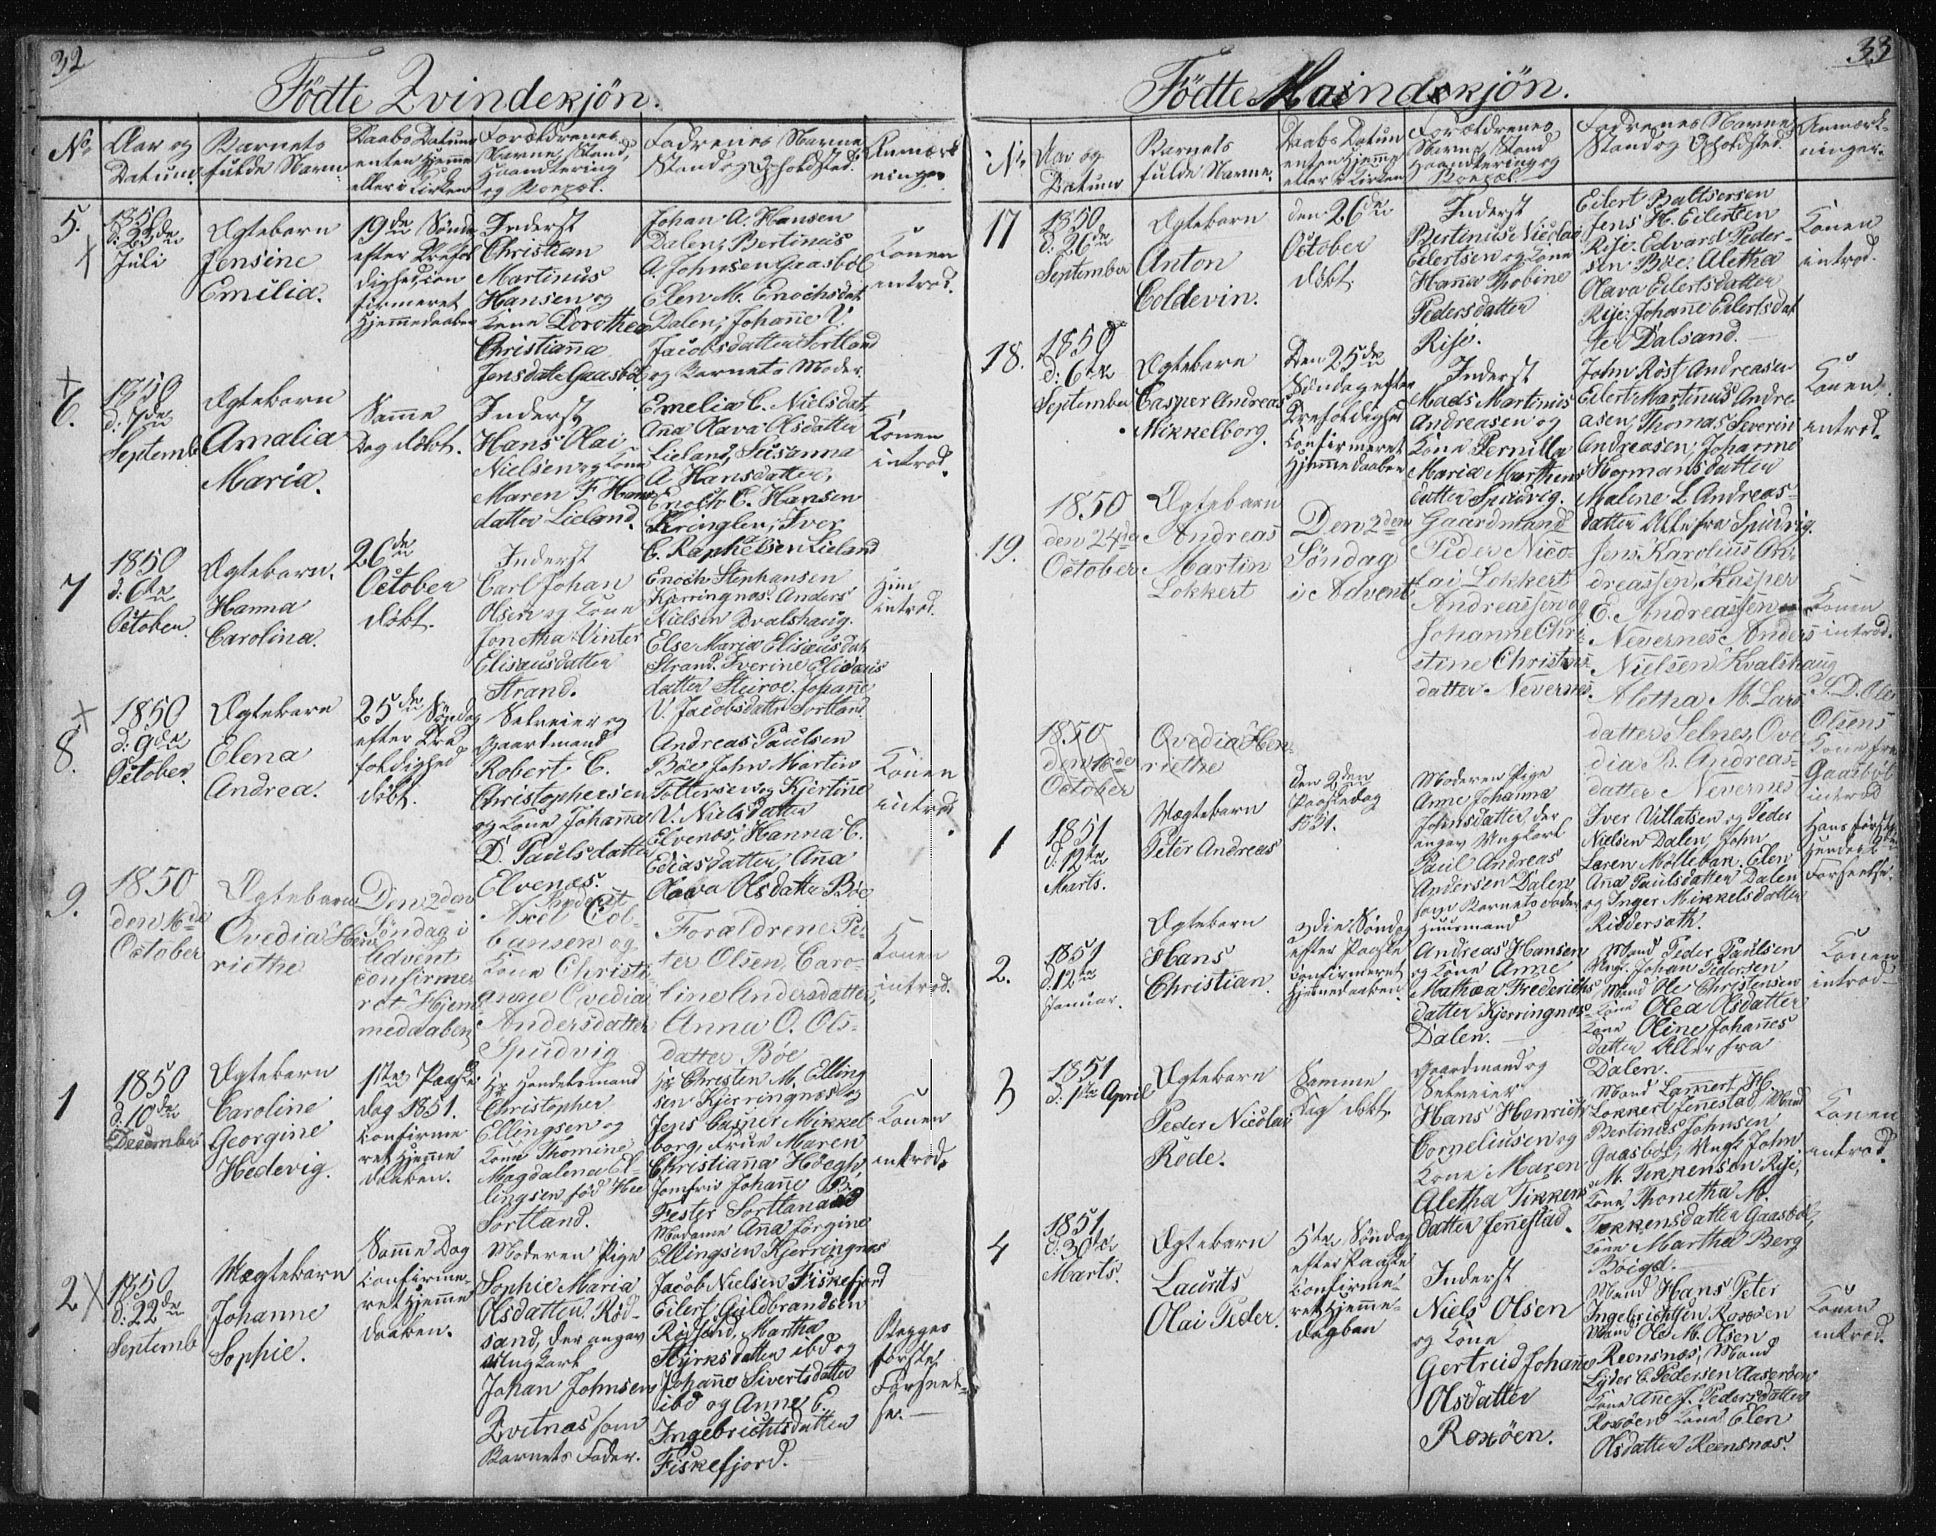 32
Födte Qvindekjön.
No.
Aar og
Datum.
Barnets
fulde Navn
Daabs Datum
enten hjemme
eller i Kirken
Forældrenes
Navne, Stand,
Haandtering
og Boepæl.
Fadrenes Navne
Stand og Opholdsted.
Anmærk
ninger
5.
1850
d: 25de
Juli
Ægtebarn
Jensine
Emilia.
19de Sönd.
efter Trefol
dighed, con
firmeret
Hjemmedaaben
Inderst
Christian
Martinus
Hansen og
Kone Dorothea
Christianna
Jensdatt. Gaasböl
Johan A. Hansen
Dalen; Bertinus
A. Johnsen Gaasböl
Elen M. Enochsdat
Dalen; Johanne V.
Jacobsdatter Sortland
og Barnets Moder.
Konen
introd.
6.
1850
d: 7de
Septemb
Ægtebarn
Amalia
Maria.
Samme
Dag döbt.
Inderst
Hans Olai
Nielsen og Kone
Maren F. Hans
datter Lieland.
Emelia C. Nielsdat.
Ana Olava Olsdatter
Lieland, Susanna
A. Hansdatter,
Enoch C. Hansen
Kringlen; Iver
C. Raphelsen Lieland
Konen
introd.
7
1850
d: 6te
October.
Ægtebarn.
Hanna
Carolina.
20de
October
döbt.
Inderst
Carl Johan
Olsen og Kone
Jonetha Vinter
Elisæusdatter
Strand.
Enoch Stenhansen
Kjerringnæs. Anders
Nielsen Kvalshaug.
Else Maria Elisæusdat.
Strand. Iverine Elisæus
datter Steiroe. Johane
V. Jacobsdatter Sortland.
Hun
introd.
8.
1850
d: 9de
October.
Ægtebarn
Elena
Andrea.
25de Söndag
efter Tre
foldighed
döbt.
Selveier og
Gaardmand
Robert C.
Christophersen
og Kone Johanna
D. Paulsdatter
Elvenæs.
Andreas Paulsen
Böe, John Martin
Tollersen og Kjertine
V. Nielsdatter
Elvenæs; Hanna C.
Ediasdatter; Ana
Olava Olsdatter Böe
Konen
introd.
9.
1850
den 16de
October
Ægtebarn
Ovedia Hen
riethe
Den 2den
Söndag i
Advent
confirme
ret Hjem
meddaaben
Inderst
Axel Col
bansen og
Kone Christi
anne Ovedia
Andersdatter
Spudvig
Foraldrene Pe
ter Olsen, Caro
line Andersdatter,
Anna O. Ols
datter Böe
Konen
introd.
1
1850
d: 10de
December
Ægtebarn
Caroline
Georgine
Hedevig.
1ste Paaske
dag 1851.
Confirme
ret Hjemme
daaben.
Hr Handelsmand
Christopher
Ellingsen og
Kone Thomine
Magdalena El
lingsen, föd Hee
Sortland.
Hr Christen M. Elling
sen Kjerringnæs og
Jens Casper Mikkel
borg. Frue Maren
Christianna Höegh,
Jomfru Johanne B.
Fester Sortland
Madame Ana Jörgine
Ellingsen Kjerringnæs
Konen
introd.
2
1850
d: 22de
Septemb
Uægtebarn
Johanne
Sophie.
Samme Dag
Confirme
ret Hjemme
daaben.
Moderen Pige
Sophie Maria
Olsdatter Röd
sand, der angav
Ungkarl
Johan Johnsen
Kvitnæs som
Barnets Fader.
Jacob Nielsen Fiskefjord
Eilert Guldbrandsen
Rödsand, Martha
Styrksdatter ibd og
Johanne Sivertsdatter
ibd og Anne E.
Ingebrichtsdatter
Fiskefjord.
Begges
förste
Forseel
se.
33
Födte Mandkjön.
No.
Aar og
Datum
Barnets
fulde Navne.
Daabs Datum
enten Hjemme
eller i Kirken
Forældrenes
Navne, Stand
Haandtering og
Boepæl
Fadrenes Navne
Stand og Opholdsted.
Anmærk-
ninger.
17
1850.
d: 26de
September
Ægtebarn
Anton
Coldevin.
den 26de
October
döbt
Inderst
Bertinus Nicolay
Eilertsen og Kone
Hanna Thobine
Pedersdatter
Rise.
Eilert Baltsersen
Jens H. Eilertsen
Rise. Edvard Peder-
sen Böe. Aletha
Olava Eilertsdatter
Rise: Johanne Eilertsdat
ter Dalsand.
Konen
introd.
18.
1850
d: 6te
September
Ægtebarn
Casper Andreas
Mikkelborg.
Den 25de
Söndag efter
Trefoldighed
Confirmeret
Hjemmedaaben
Inderst
Mads Martinus
Andreasen og
Kone Pernilla
Maria Marthins
datter Spudvig.
John Röst Andreasen
Eilert Martinus Andre
asen, Thomas Severin
Andreasen, Johanna
Thormansdatter
Malene L. Andreas-
datter Alle fra Spudvig.
Konen
introd.
19.
1850
den 24de
October
Ægtebarn
Andreas
Martin
Lokkert
Den 2den
Söndag
i Advent
Gaardmand
Peder Nico-
lai Lokkert
Andreassen og
Johanne Chri
stine Christens
datter Nevernes.
Jens Karolius An
dreassen, Kasper
E. Andreassen
Nevernes Anders
Nielsen Kvalshaug
Aletha M. Lars
datter Selnes, Ove
dia B. Andreas-
datter Nevernes
Konen
introd.
J. D. Ole
Olsens
Kone fra
Gaasböl
introd
1850
den 16de
October
Ovedia Hen
riethe
1
1851
d: 12te
Marts.
Uægtebarn
Peter Andreas
Den 2den
Paaskedag
1851.
Moderen Pige
Anne Johanna
Johnsdatter, der
angav Ungkarl
Paul Andreas
Andersen Dalen
som Barnets Fader
Iver Villatsen og Peder
Nielsen Dalen, John
Larsen Möllebak. Elen
Ana Paulsdatter Dalen
og Inger Mikkelsdatter
Riddersoth.
Hans förste
Hendes 2den
Forseelse.
2.
1851
d. 12te
Januar.
Ægtebarn
Hans
Christian.
3die Söndag
efter Paaske
Confirmeret
Hjemmedaaben.
Huusmand
Andreas Hansen
og Kone Anne
Mathea Frederiks
datter Kjerringnæs
Dalen.
Mand Peder Paulsen
Ung. Johan Pedersen
Mand Ole Christensen
Kone Olea Olsdatter
Kone Oline Johannes
datter Aller fra
Dalen.
Konen
introd
3
1851
d: 1ste April
Ægtebarn
Peder Nicolai
Röde.
Samme
Dag döbt
Gaardmand og
Selveier
Hans Henrich
Corneliusen og
Kone Maren
Aletha Tikkens
datter Jennestad.
Mand Lamert H.
Lokkert Jennestad, Mand
Bertinus Johnsen
Gaasböl, Ungk. John
M. Tokkensen Rise,
Kone Thonetha M.
Tokkensdatter Gaasböl,
Kone Martha Berg
Böigd.
Konen
introd.
4
1851
d: 30te
Marts.
Ægtebarn
Laurits
Olai Peder.
5te Söndag
efter Paaske
Confirme-
ret Hjemme-
dagban
Inderst
Niels Olsen
og Kone
Gertrud Johanne
Olsdatter
Roxöen.
Mand Hans Peter
Ingebrichtsen Roxöen
Mand Ole M. Olsen
Reensnæs, Mand
Lyder C. Pedersen Aaseröen
Kone Ane J. Pedersdatter
Roxöen Kone Elen
Olsdatter Reensnæs.
Konen
introd.